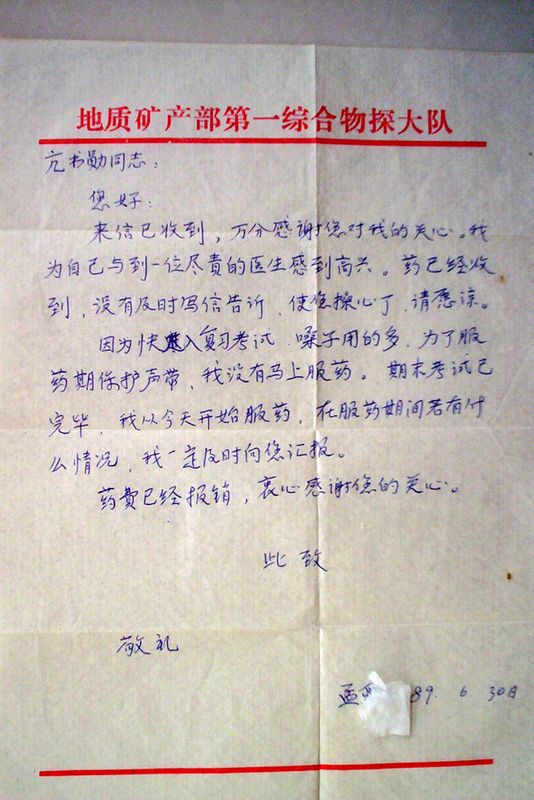 地质矿产部第一综合物探大队
亢书勋同志：
您好：
来信已收到，万分感谢您对我的关心。我
为自己与到一位尽责的医生感到高兴。药已经收
到，没有及时写信告诉，使您操心了，请愿谅。
因为快进入复习考试，嗓子用的多，为了服
药期保护声带，我没有马上服药。期末考试已
完毕，我从今天开始服药，在服药期间若有什
么情况，我一定及时向您汇报。
药费已经报销，衷心感谢您的关心。
此致
敬礼
孟 89. 6 30日